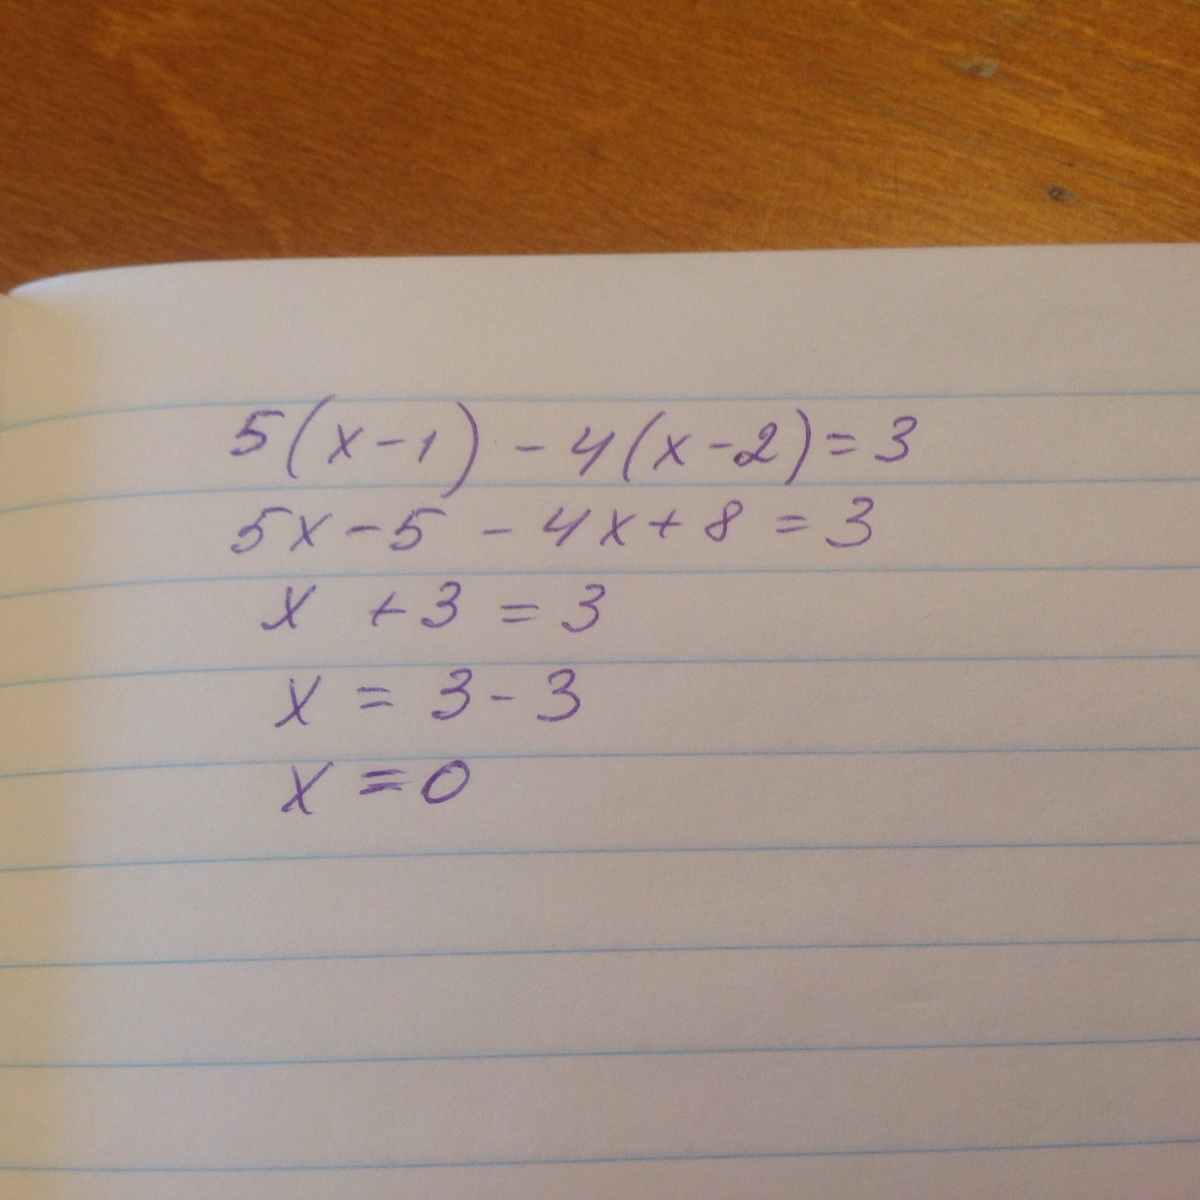 5(x-1) - 4(x-2)=3
5x-5 - 4x+8 = 3
x +3 = 3
x = 3-3
x = 0